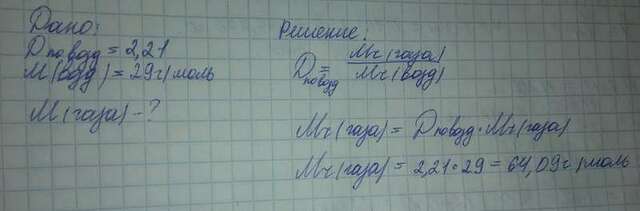 Дано:
D по возд = 2,21
M(возд) = 29г/моль
M(газа) - ?
Решение:
D по возд = Mr(газа) / Mr(возд)
Mr(газа) = D по возд · Mr(газа)
Mr(газа) = 2,21 · 29 = 64,09г/моль